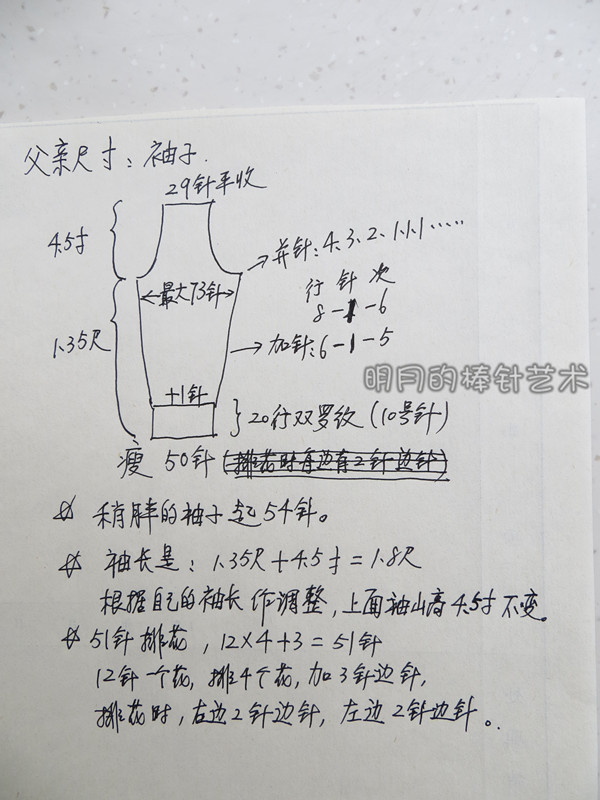 父亲尺寸：袖子.
29针平收
4.5寸
并针：4、3、2、1.1.1……
最大73针
行 针 次
8-1-6
1.35尺
加针：6-1-5
明月的棒针艺术
+1针
20行双罗纹（10号针）
瘦 50针（排花时有边有2针边针）
☆ 稍胖的袖子起54针。
☆ 袖长是：1.35尺+4.5寸=1.8尺
根据自己的袖长作调整，上面袖山高4.5寸不变。
☆ 51针排花，12×4+3=51针
12针一个花，排4个花，加3针边针，
排花时，右边2针边针，左边2针边针。